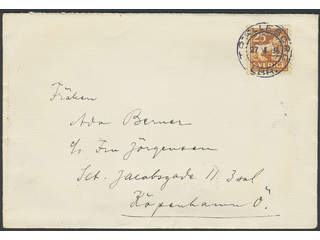 Fröken
Ada Berner
c/o Fru Jörgensen
Sct. Jacobsgade 11 3 sal
Köpenhamn Ö.